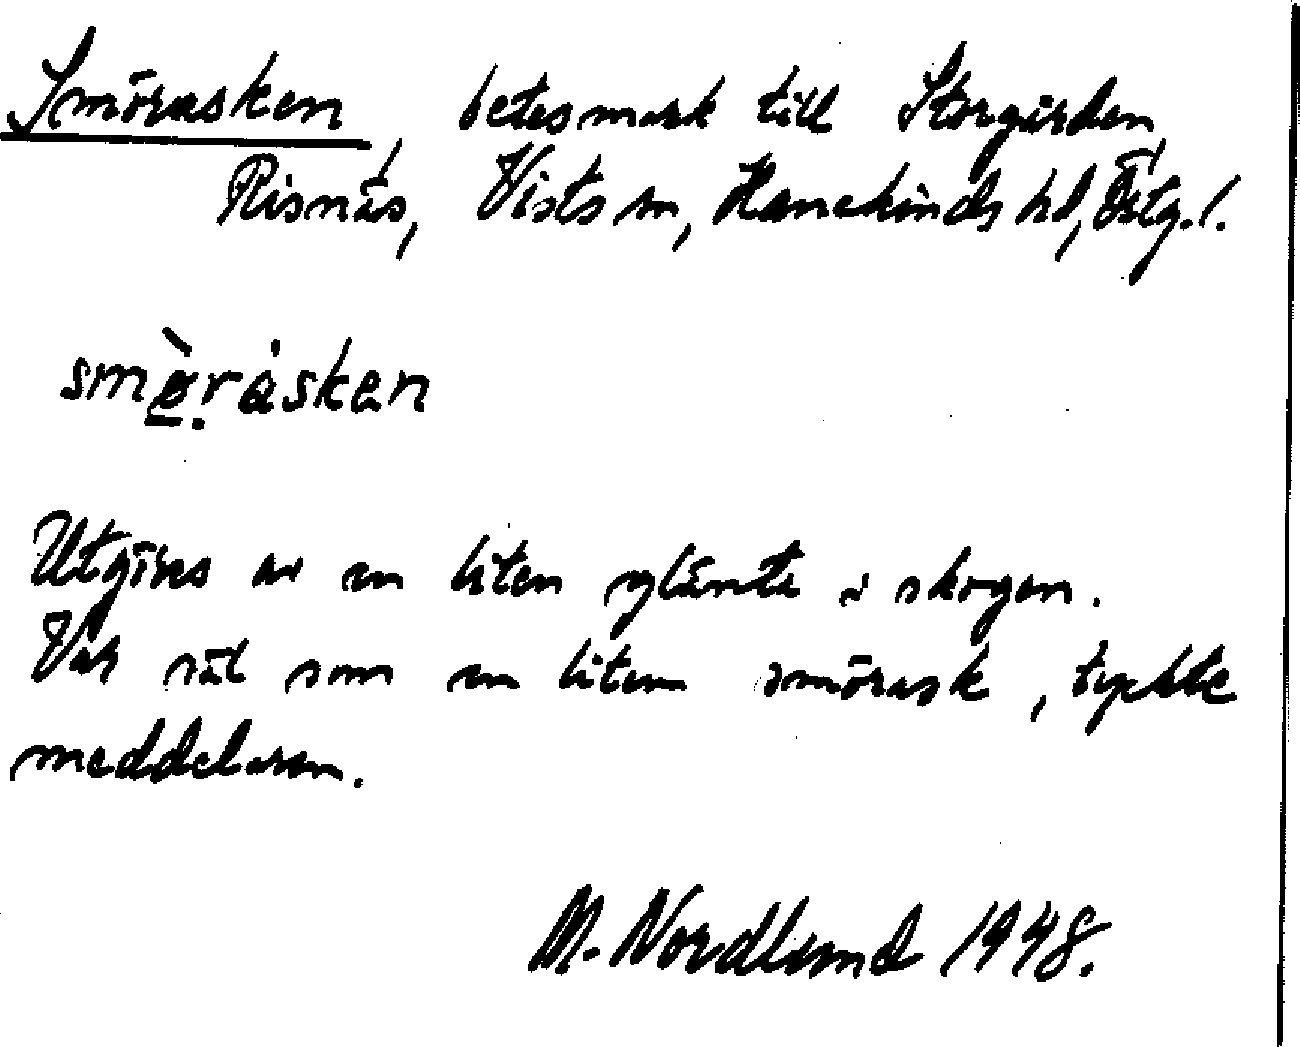 Smörasken, betesmark till Storgården,
Risnäs, Vists sn, Hanekinds hd, Östg. l.
smø̀ràsken
Utgöres av en liten glänta i skogen.
Var rät som en liten smörask, tyckte
meddelaren.
M. Nordlund 1948.